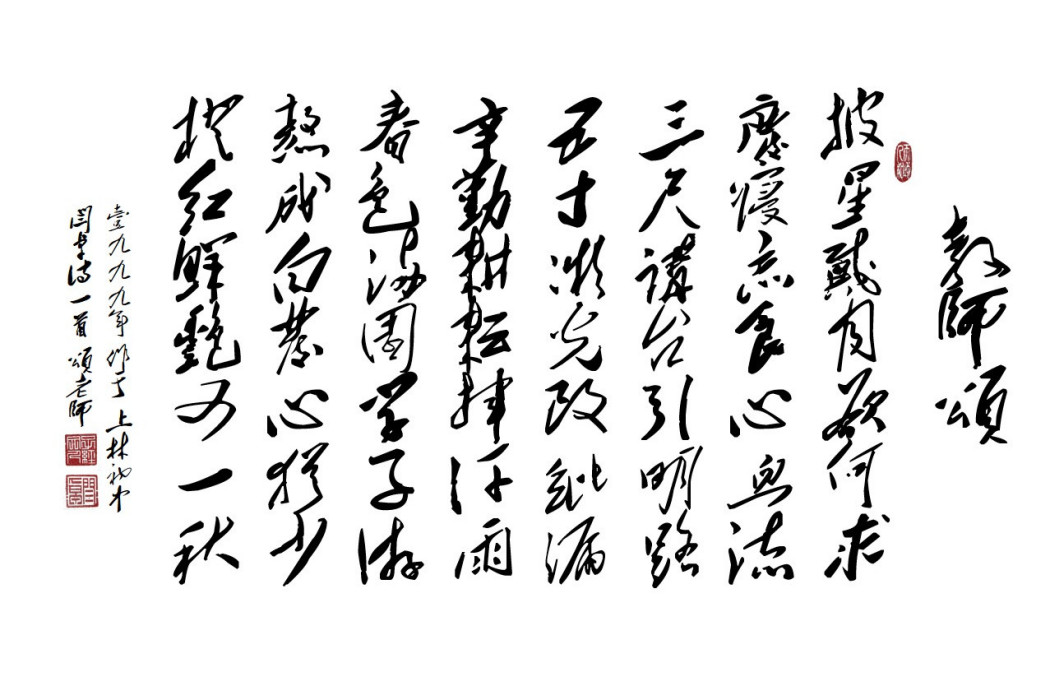 教師頌
披星戴月欲何求
廢寢忘食心血流
三尺講台引明路
五寸凝光改紕漏
辛勤耕耘揮汗雨
春色滿園學子游
熬成白髮心猶少
桃红鲜艷又一秋
壹九九九年作于上林初中
诗一首頌老師